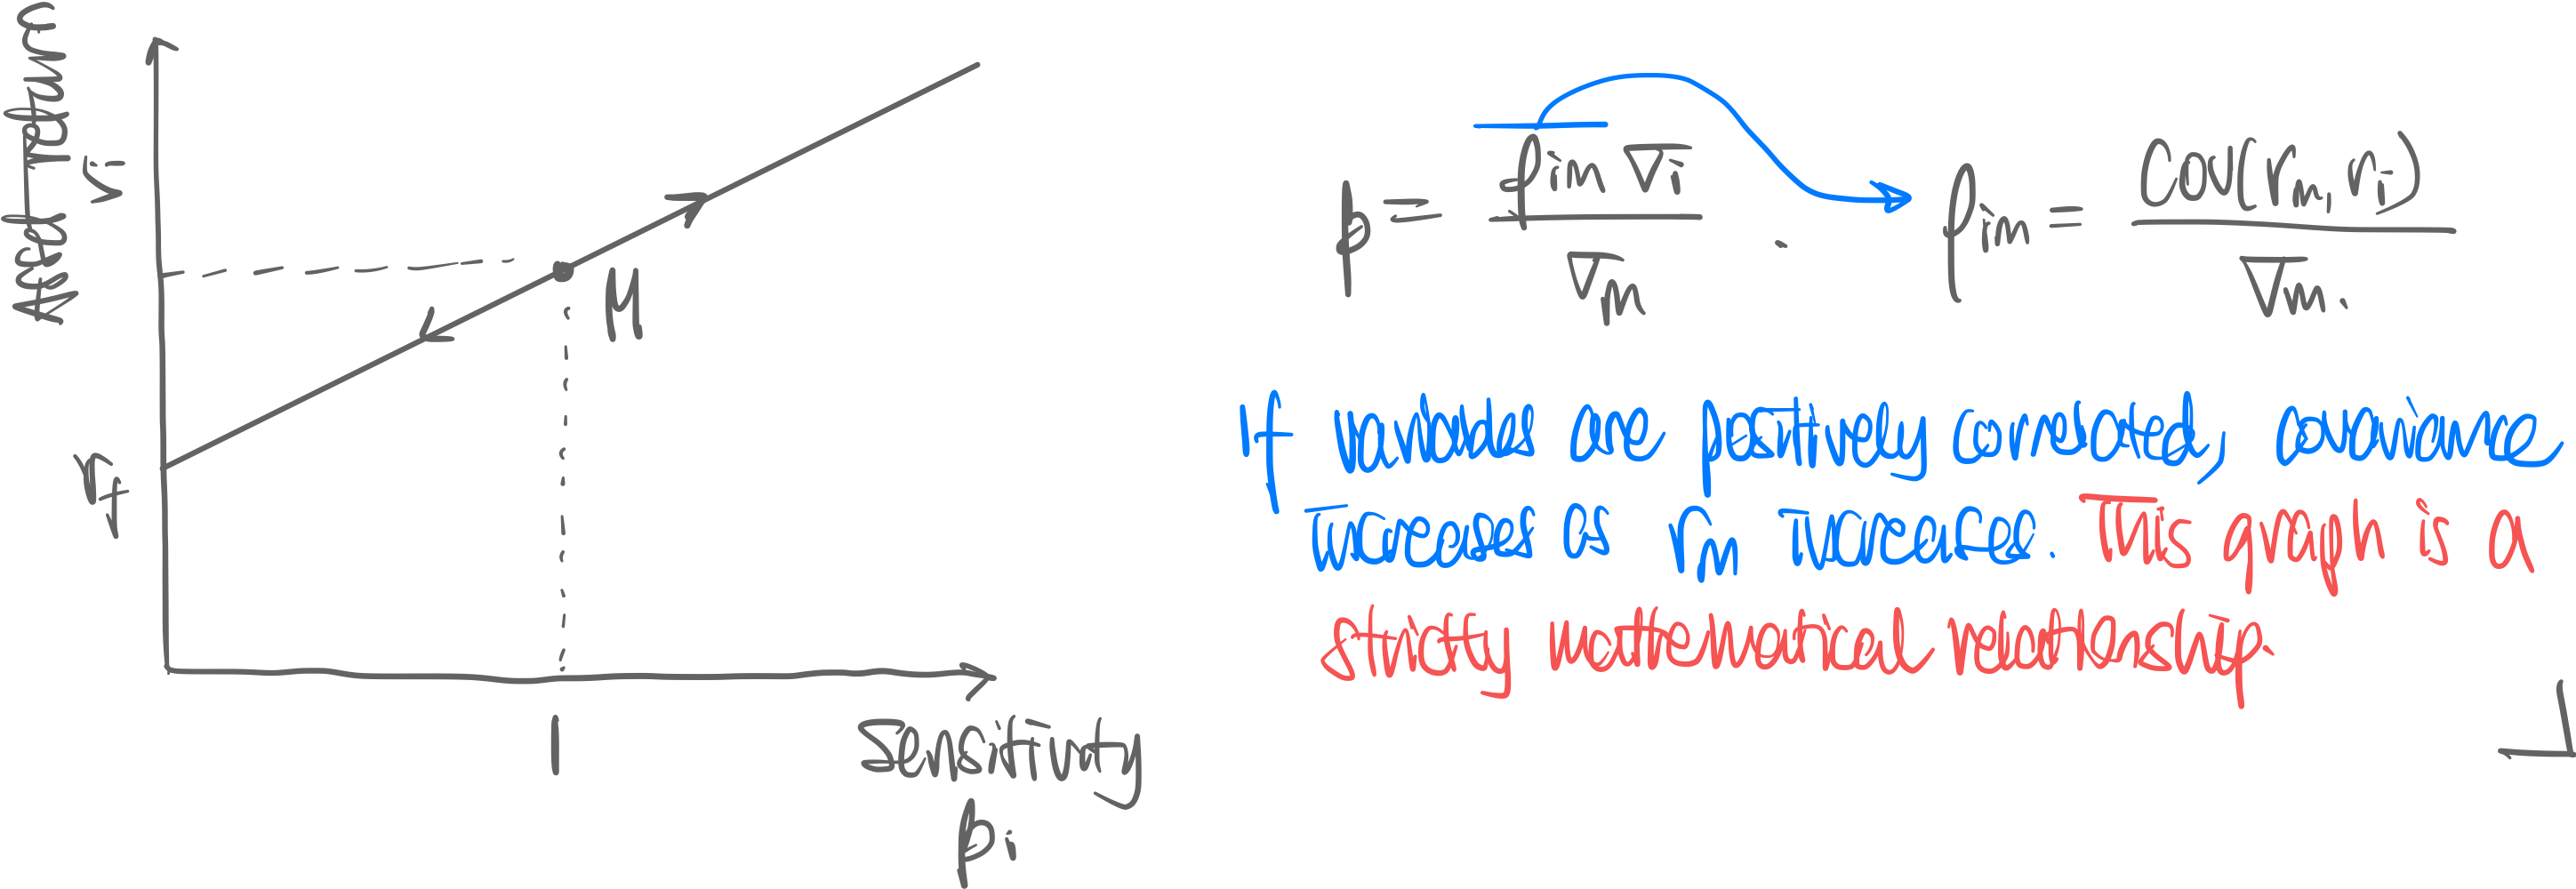 Asset return
ri
rf
M
1
Sensitivity
βi
β = ρim σi / σm .
ρim = Cov(rm, ri) / σm.
If variables are positively correlated, covariance
increases as rm increases. This graph is a
strictly mathematical relationship.